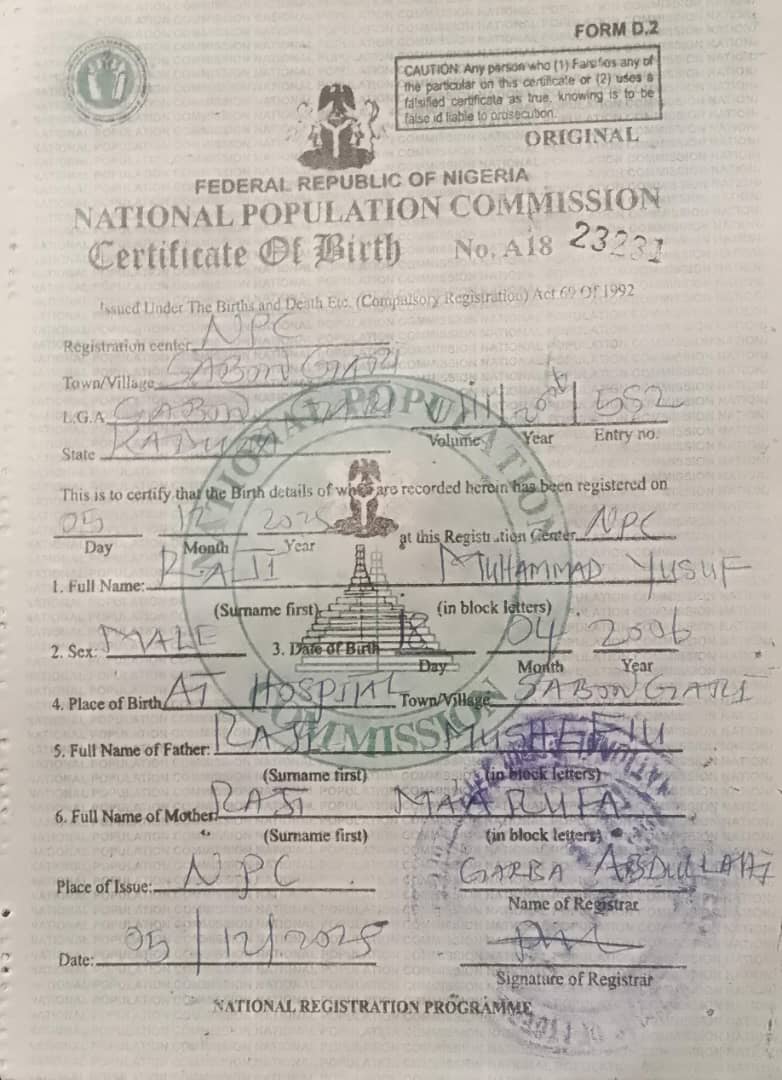 FORM D.2
CAUTION: Any person who (1) Farsifies any of
the particular on this certificate or (2) uses a
falsified certificate as true, knowing is to be
false id liable to prosecution.
ORIGINAL
FEDERAL REPUBLIC OF NIGERIA
NATIONAL POPULATION COMMISSION
Certificate Of Birth No. A18 23231
Issued Under The Births and Death Etc. (Compulsory Registration) Act 69 Of 1992
Registration center NPC
Town/Village SABON GARI
L.G.A SABON GARI
State KADUNA
Volume Year 2006 Entry no. 552
This is to certify that the Birth details of whos are recorded herein has been registered on
05 12 2025 at this Registration Center NPC
Day Month Year
1. Full Name: RAJI MUHAMMAD YUSUF
(Surname first) (in block letters)
2. Sex: MALE 3. Date of Birth 18 04 2006
Day Month Year
4. Place of Birth AT HOSPITAL Town/Village SABON GARI
5. Full Name of Father: RAJI
(Surname first) (in block letters)
6. Full Name of Mother: RAJI MAARUFA
(Surname first) (in block letters)
Place of Issue: NPC GARBA ABDULLAHI
Name of Registrar
Date: 05/12/2025
Signature of Registrar
NATIONAL REGISTRATION PROGRAMME
NATIONAL POPULATION COMMISSION